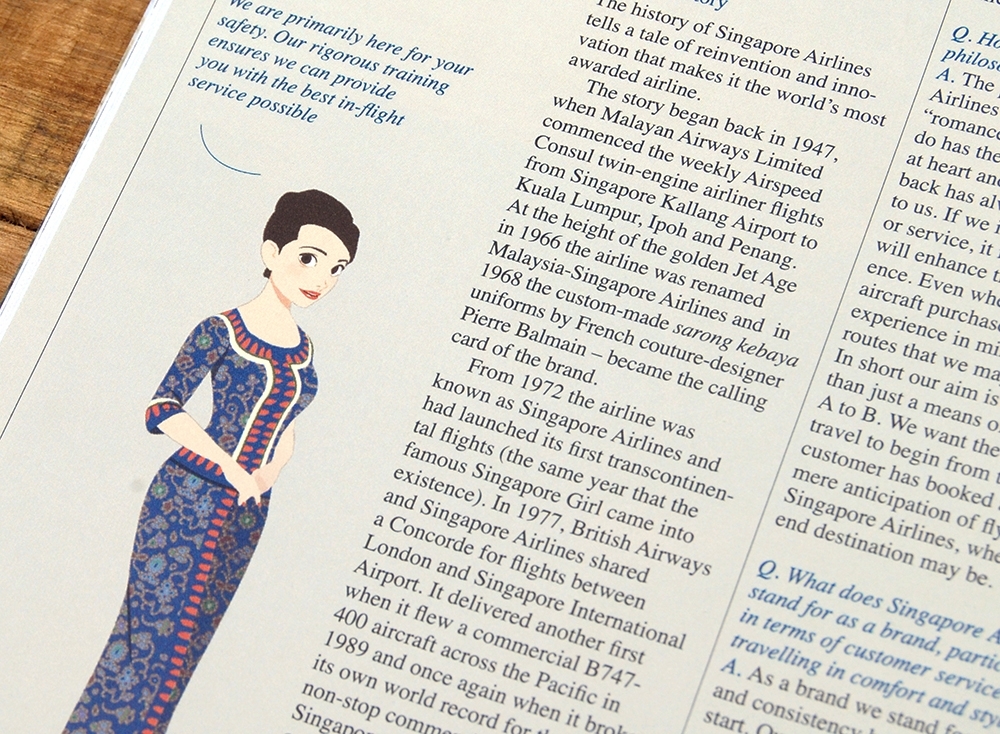 We are primarily here for your
safety. Our rigorous training
ensures we can provide
you with the best in-flight
service possible
The history of Singapore Airlines
tells a tale of reinvention and inno-
vation that makes it the world's most
awarded airline.
The story began back in 1947,
when Malayan Airways Limited
commenced the weekly Airspeed
Consul twin-engine airliner flights
from Singapore Kallang Airport to
Kuala Lumpur, Ipoh and Penang.
At the height of the golden Jet Age
in 1966 the airline was renamed
Malaysia-Singapore Airlines and in
1968 the custom-made sarong kebaya
uniforms by French couture-designer
Pierre Balmain – became the calling
card of the brand.
From 1972 the airline was
known as Singapore Airlines and
had launched its first transcontinen-
tal flights (the same year that the
famous Singapore Girl came into
existence). In 1977, British Airways
and Singapore Airlines shared
a Concorde for flights between
London and Singapore International
Airport. It delivered another first
when it flew a commercial B747-
400 aircraft across the Pacific in
1989 and once again when it brok
its own world record for th
non-stop comme
Singapor
Q. Ho
philoso
A. The
Airlines
“romance
do has the
at heart and
back has alw
to us. If we i
or service, it
will enhance t
ence. Even whe
aircraft purchase
experience in mi
routes that we ma
In short our aim is
than just a means o
A to B. We want the
travel to begin from t
customer has booked
mere anticipation of fly
Singapore Airlines, whe
end destination may be.
Q. What does Singapore A
stand for as a brand, partic
in terms of customer service
travelling in comfort and sty
A. As a brand we stand fo
and consistency
start. O